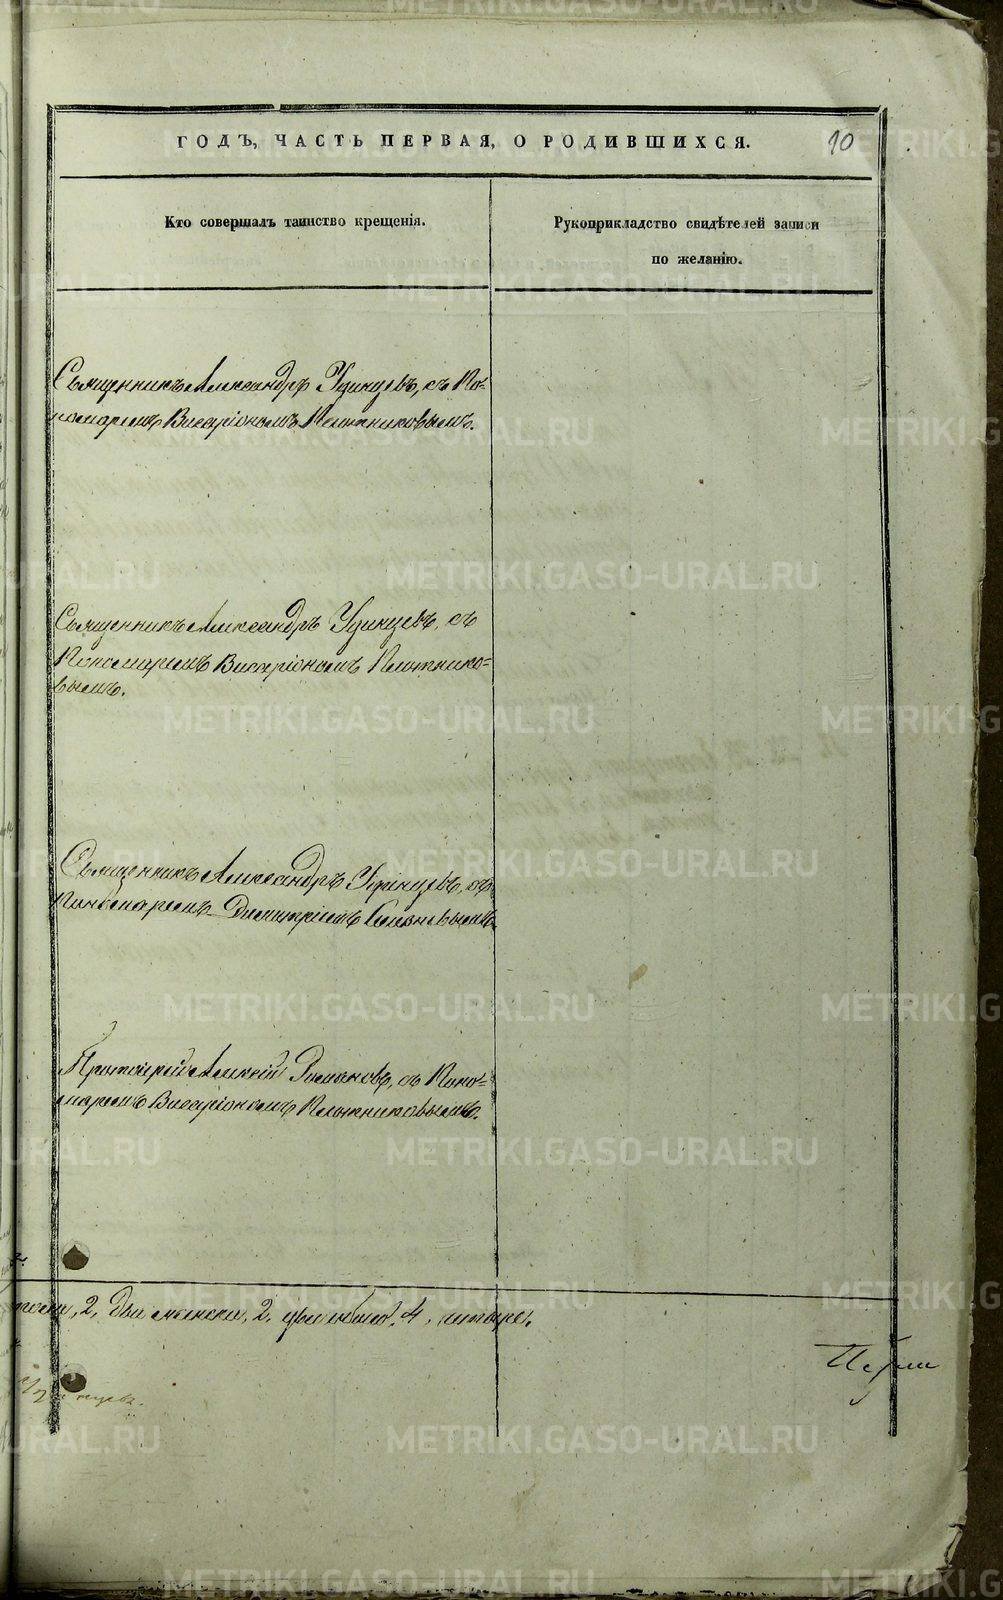 ГОДЪ, ЧАСТЬ ПЕРВАЯ, О РОДИВШИХСЯ.
10
Кто совершалъ таинство крещенія.
Рукоприкладство свидѣтелей записи
по желанію.
Священникъ Александръ Удинцевъ, съ По-
номаремъ Висаріономъ Плотниковымъ.
Священникъ Александръ Удинцевъ, съ
Пономаремъ Висаріономъ Плотнико-
вымъ.
Священникъ Александръ Удинцевъ, съ
Пономаремъ Димитріемъ
Протоіерей Алексій Романовъ, съ Поно-
маремъ Висаріономъ Плотниковымъ.
2, два женска, 2, обоего 4, четыре.
METRIKI.GASO-URAL.RU